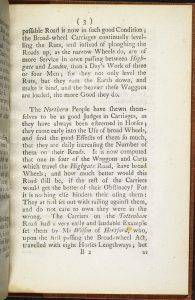 ( 3 )
passable Road is now in such good Condition ;
the Broad-wheel Carriages continually level-
ling the Ruts, and instead of ploughing the
Roads up, as the narrow Wheels do, are of
more Service in once passing between High-
gate and London, than a Day's Work of three
or four Men ; for they not only level the
Ruts, but they ram the Earth down, and
make it bind, and the heavier these Waggons
are loaded, the more Good they do.
The Northern People have shewn them-
selves to be as good Judges in Carriages, as
they have always been esteemed in Horses ;
they came early into the Use of broad Wheels,
and find the good Effects of them so much,
that they are daily increasing the Number of
them on their Roads. It is now computed
that one in four of the Waggons and Carts
which travel the Highgate Road, have broad
Wheels ; and how much better would this
Road still be, if the rest of the Carriers
would get the better of their Obstinacy? For
it is nothing else hinders their using them :
They at first set out with railing against them,
and do not care to own they were in the
wrong. The Carriers on the Tottenham
Road had a very early and laudable Example
set them by Mr of Hertford, who,
upon the first passing the Broad-wheel Act,
travelled with eight Horses Lengthways, but
B 2